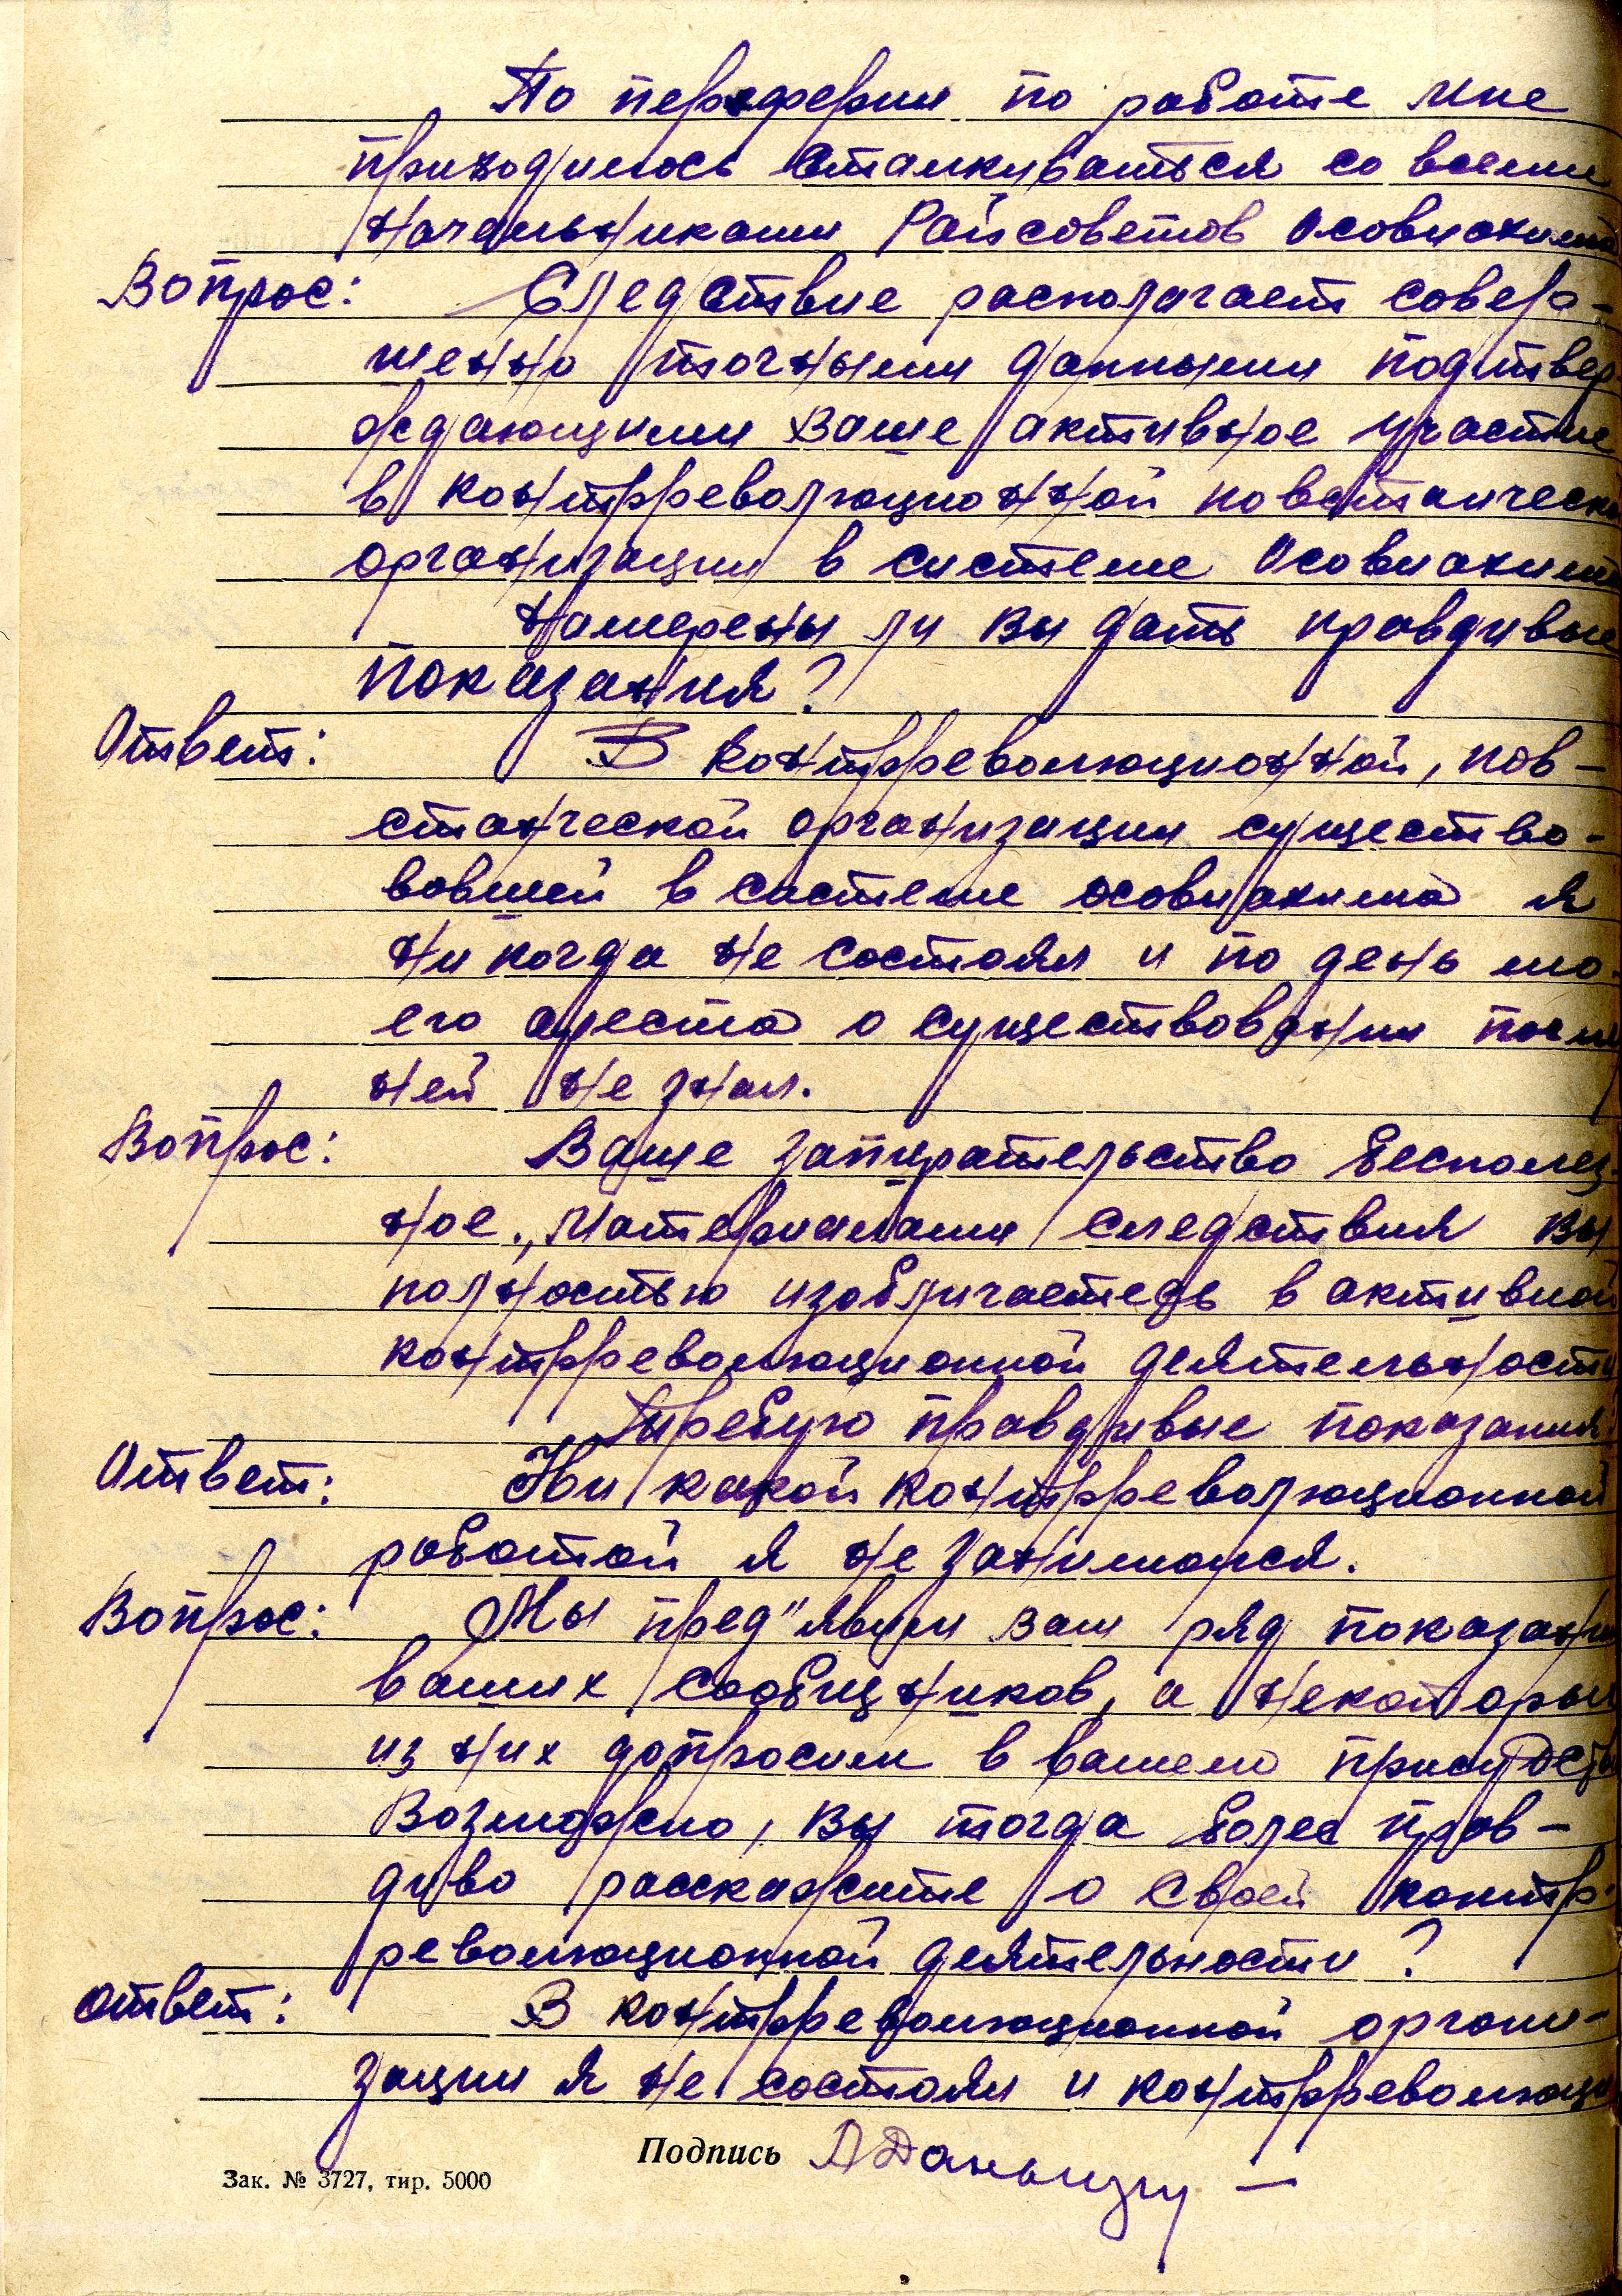 По перефирии по работе мне
приходилось сталкиваться со всеми
начальниками Райсоветов Осовиахима
Вопрос: Следствие располагает совер-
шенно точными данными подтвер
ждающими Ваше активное участие
в контрреволюционной повстанческ
организации в системе Осовиахима
Намерены ли Вы дать правдивые
показания?
Ответ: В контрреволюционной, пов-
станческой организации существо-
вовшей в системе осовиахима я
ни когда не состоял и по день мо
его ареста о существовании
ней не знал.
Вопрос: Ваше запирательство бесполез
ное., Материалами следствия Вы
полностью изобличаетесь в активной
контрреволюционной деятельности
Требую правдивые показания.
Ответ: Ни какой контрреволюционной
работой я не занимался.
Вопрос: Мы пред"явим вам ряд показани
ваших сообщников, а некоторых
из них допросим в вашем
Возможно, Вы тогда более прав-
диво расскажите о своей контр-
революционной деятельности?
Ответ: В контрреволюционной органи-
зации я не состоял и контрреволюци
Подпись
Зак. № 3727, тир. 5000